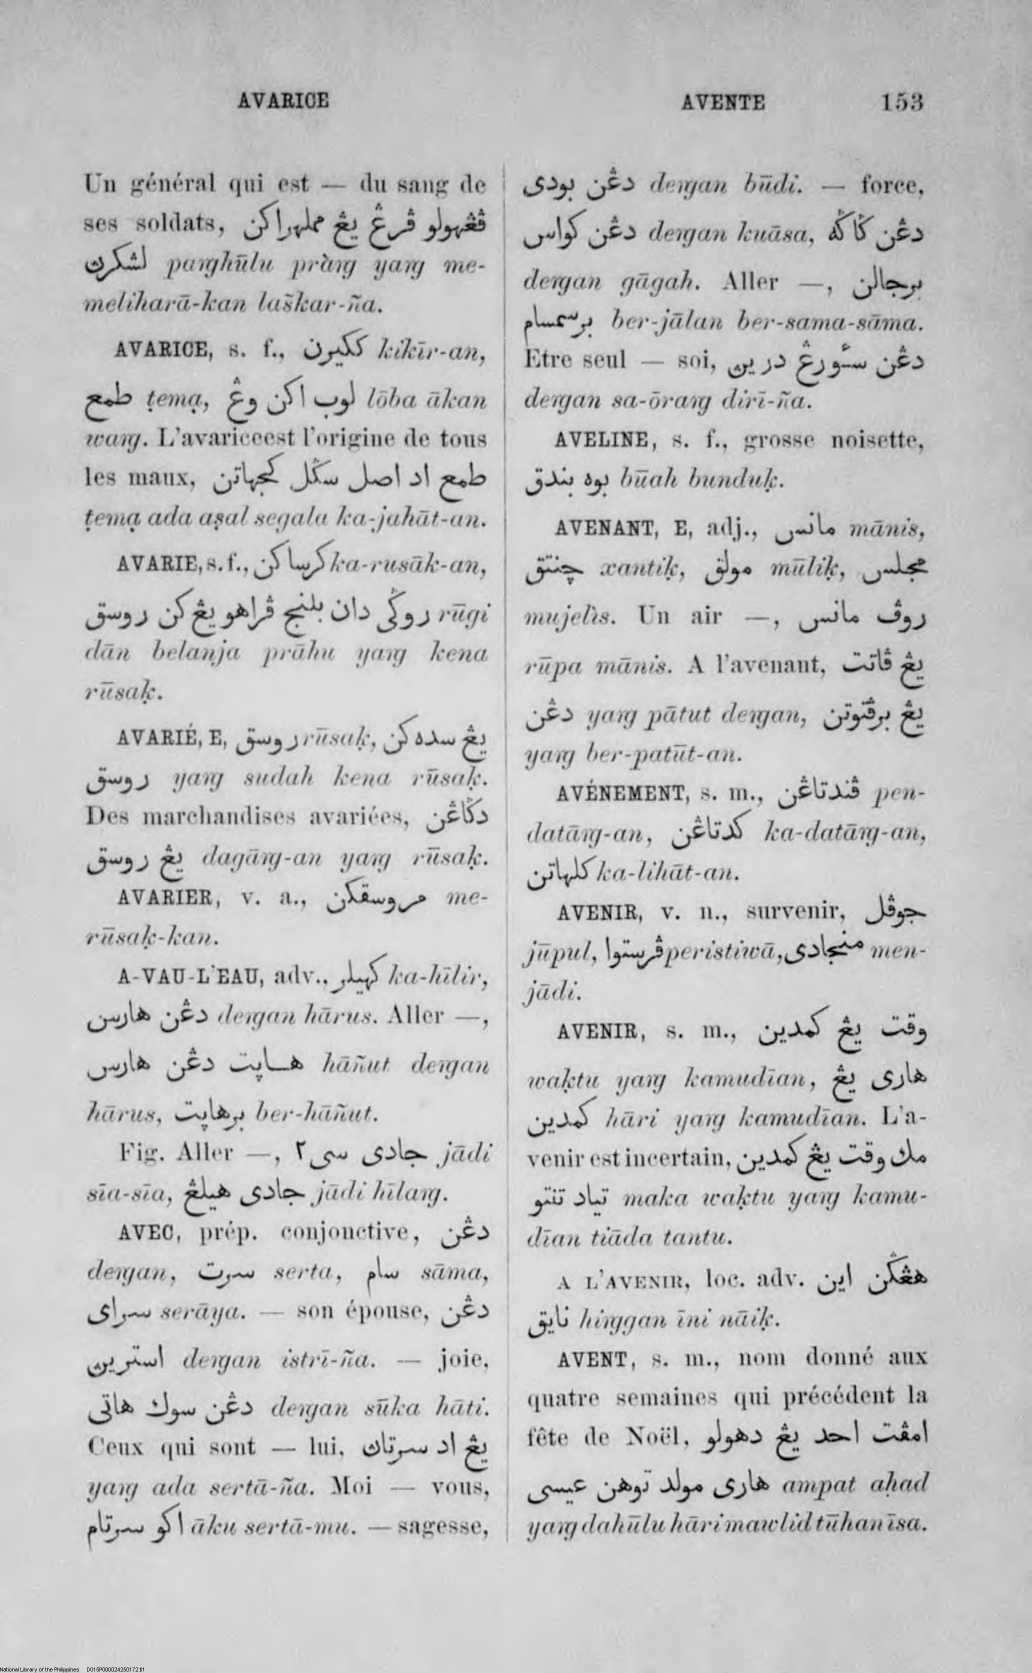 AVARICE
AVENTE 153
Un général qui est — du sang de
ses soldats, ڤڠهولو ڤرڠ يڠ مملهراكن
لشكرن parghūlu pràrg yarg me-
meliharā-kan laškar-ña.
AVARICE, s. f., ككيرن kikīr-an,
طمع ṭemạ, لوب اكن وڠ lōba ākan
warg. L'avariceest l'origine de tous
les maux, طمع اد اصل سڬل كجهاتن
ṭemạ ada aṣal segala ka-jahāt-an.
AVARIE, s. f., كرساكن ka-rusāk-an,
روڬي دان بلنج ڤراهو يڠ كن روسق rūgi
dān belanja prāhu yarg kena
rūsaḳ.
AVARIÉ, E, روسق rūsaḳ, يڠ سده كن
روسق yarg sudah kena rūsaḳ.
Des marchandises avariées, دڬاڠن
يڠ روسق dagārg-an yarg rūsaḳ.
AVARIER, v. a., مروسقكن me-
rūsaḳ-kan.
A-VAU-L'EAU, adv., كهيلر ka-hīlir,
دڠن هارس dergan hārus. Aller —,
هاپت دڠن هارس hāñut dergan
hārus, برهاپت ber-hāñut.
Fig. Aller —, جادى سى٢ jādi
sīa-sīa, جادى هيلڠ jādi hīlarg.
AVEC, prép. conjonctive, دڠن
dergan, سرت serta, سام sāma,
سراى serāya. — son épouse, دڠن
استرين dergan istrī-ña. — joie,
دڠن سوك هاتى dergan sūka hāti.
Ceux qui sont — lui, يڠ اد سرتاڽ
yarg ada sertā-ña. Moi — vous,
اكو سرتام āku sertā-mu. — sagesse,
دڠن بودى dergan būdi. — force,
دڠن كواس dergan kuāsa, دڠن ڬاڬه
dergan gāgah. Aller —, برجالن
برسمسام ber-jālan ber-sama-sāma.
Etre seul — soi, دڠن سئورڠ درين
dergan sa-ōrarg dirī-ña.
AVELINE, s. f., grosse noisette,
بوه بندق būah bunduḳ.
AVENANT, E, adj., مانس mānis,
چنتق xantiḳ, مولق mūliḳ, مجلس
mujelìs. Un air —, روڤ مانس
rūpa mānis. A l'avenant, يڠ ڤاتت
دڠن yarg pātut dergan, يڠ برڤتوتن
yarg ber-patūt-an.
AVÉNEMENT, s. m., ڤندتاڠن pen-
datārg-an, كدتاڠن ka-datārg-an,
كلهاتن ka-lihāt-an.
AVENIR, v. n., survenir, جوڤل
jūpul, ڤرستوا peristiwā, منجادى men-
jādi.
AVENIR, s. m., وقت يڠ كمدين
waḳtu yarg kamudīan, هارى يڠ
كمدين hāri yarg kamudīan. L'a-
venir est incertain, مك وقت يڠ كمدين
تياد تنتو maka waḳtu yarg kamu-
dīan tiāda tantu.
A L'AVENIR, loc. adv. هڠڬن اين
نايق hirggan īni nāiḳ.
AVENT, s. m., nom donné aux
quatre semaines qui précédent la
fête de Noël, امڤت احد يڠ دهولو
هارى مولد توهن عيسى ampat aḥad
yarg dahūlu hāri mawlid tūhan īsa.
National Library of the Philippines